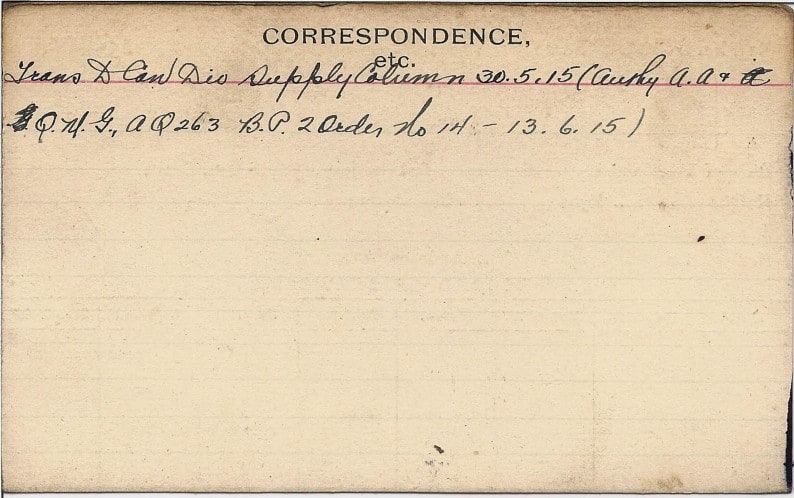 CORRESPONDENCE,
etc.
Trans D Can Div Supply Column 30.5.15 (Authy A.A &
Q.M.G., AQ263 B.P. 2 Order No 14 - 13.6.15)